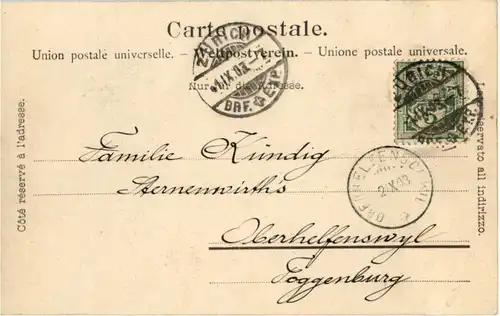 Carta postale.
Union postale universelle. – Weltpostverein. – Unione postale universale.
Nur für die Adresse.
Côté réservé à l'adresse.
Lato riservato all indirizzo.
ZÜRICH
1.IX.03.–7
BRF. EXP.
ZÜRICH
BRF. EXP.
5
OBERHELFENSCHWIL
2.IX.03
Familie Kündig
Sternenwirths
Oberhelfenswyl
Toggenburg